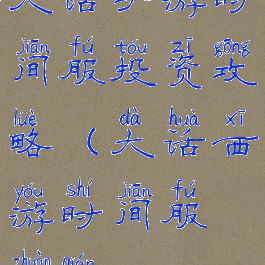 jiān fú tóu zī gōng
间服投资攻
lüè dà huà xī
略（大话西
yóu shí jiān fú
游时间服
zhuàn qián